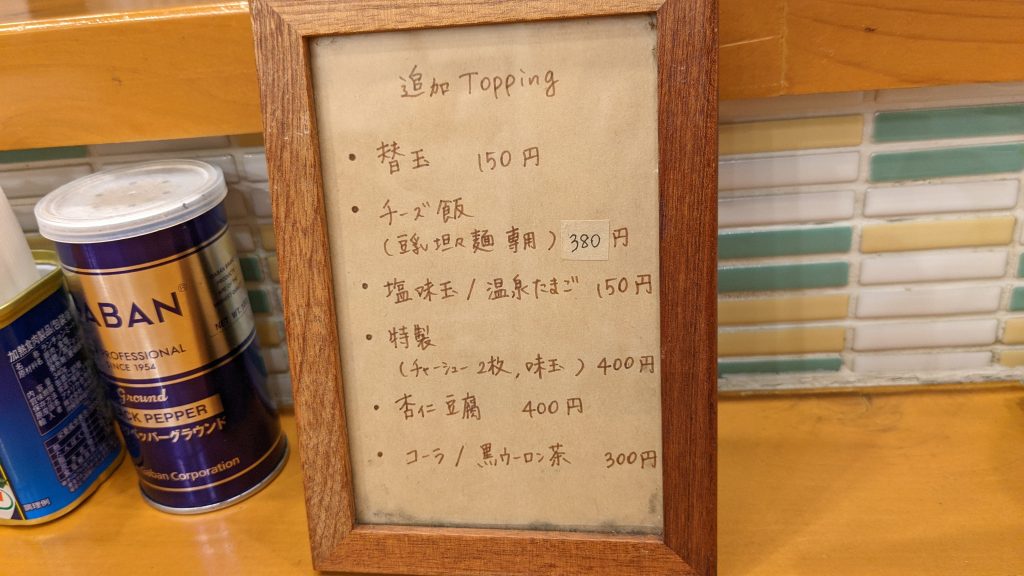 追加 Topping
• 替玉 150円
• チーズ飯
(豆乳坦々麺 専用) 380 円
• 塩味玉 / 温泉たまご 150円
• 特製
(チャーシュー2枚,味玉) 400円
• 杏仁豆腐 400円
• コーラ / 黒ウーロン茶 300円
ABAN®
PROFESSIONAL
SINCE 1954
Ground
CK PEPPER
ッパーグラウンド
aban Corporation
調理例